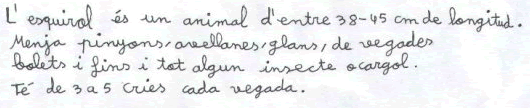 L'esquirol és un animal d'entre 38-45 cm de longitud.
Menja pinyons, avellanes, glans, de vegades
bolets i fins i tot algun insecte o cargol.
Té de 3 a 5 cries cada vegada.